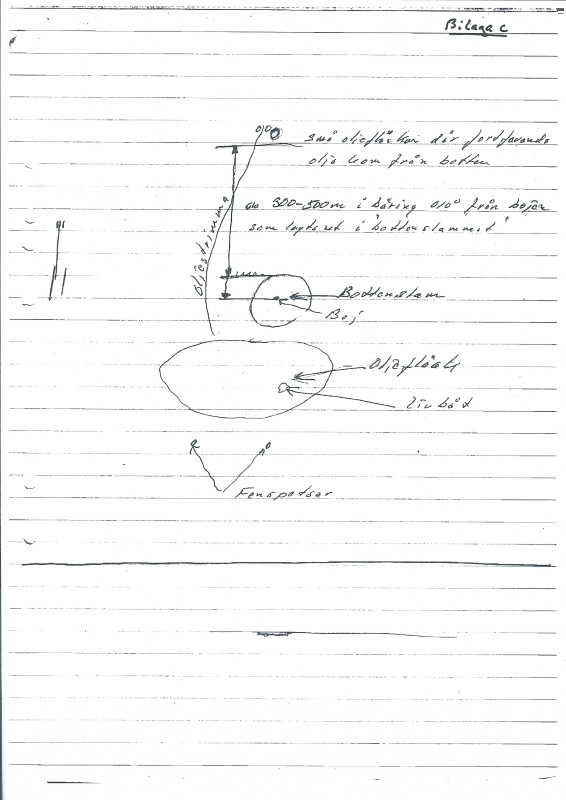 Bilaga C
små oljefläckar där fortfarande
olja kom från botten
ca 300-500m i bäring 010° från bojen
som lagts ut i "bottenslammet"
oljestrimma
Bottenslam
Boj
Oljefläck
Livbåt